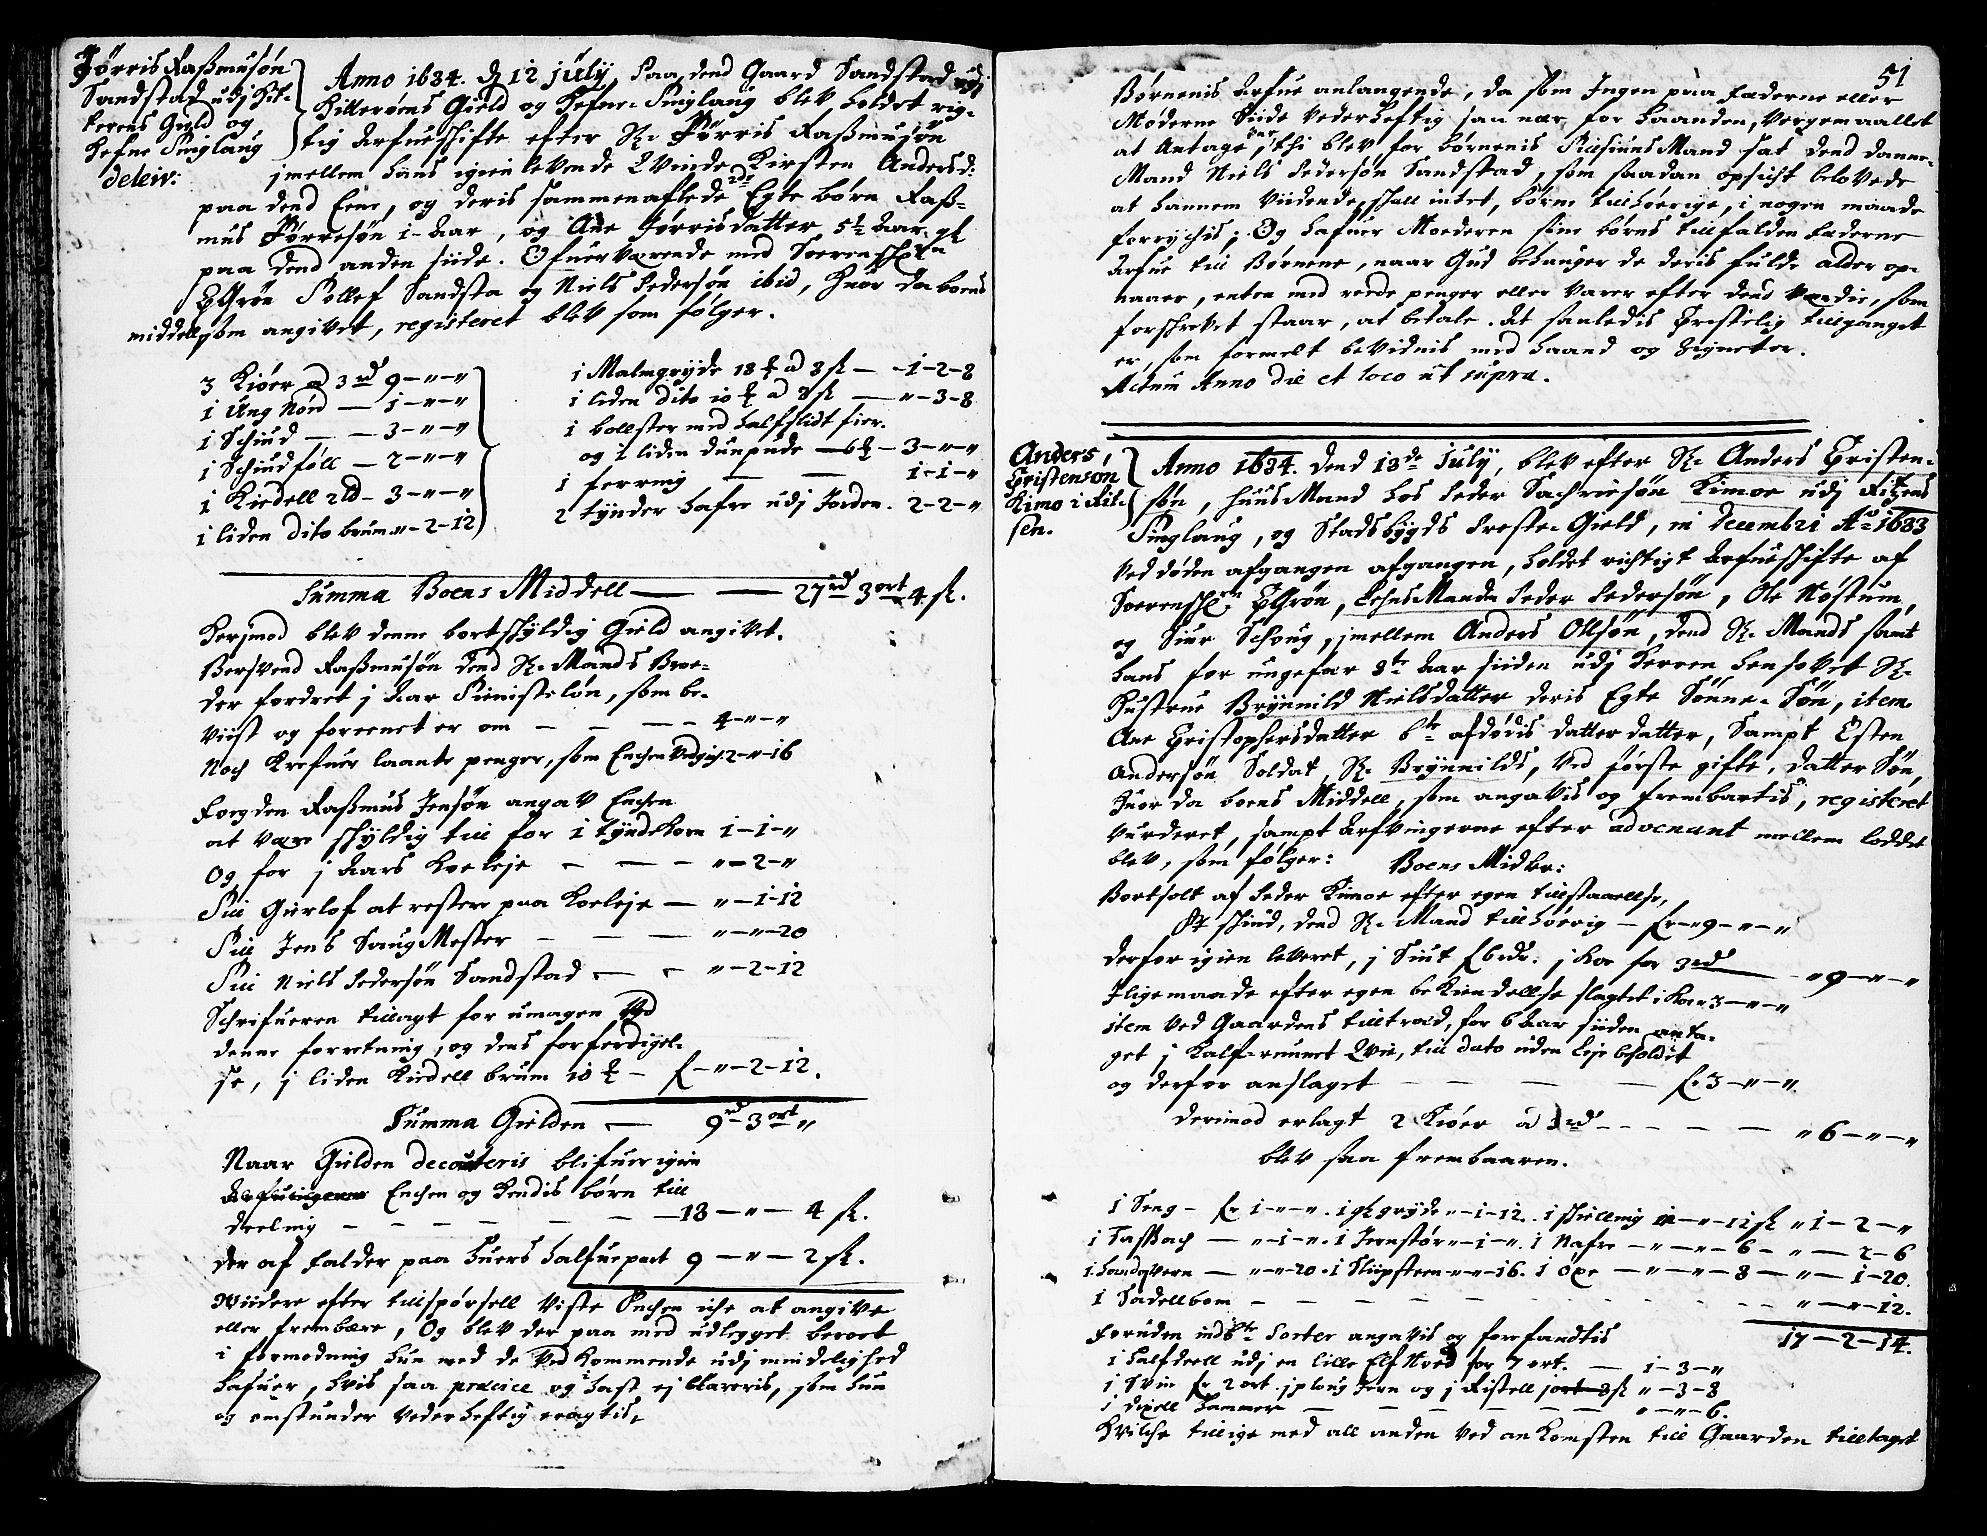 Jørris Raßmusøn
Sandstad udj Hit-
terens Gield og
Hefne Tinglaug
deleiv:
Anno 1684. d 12 july, Paa dend Gaard Sandstad udj
Hitterøens Gield og Hefne-Tinglaug blev holdet rig-
tig Arfueskifte efter Sl. Jørris Raßmusøn
jmellem hans igien levende Qvinde Kirsten Andersd:
paa dend Eene, og deris sammenaflede 2de Egte børn Raß-
mus Jørresøn 1 Aar, og Ane Jørrisdatter 5½ Aar gl
paa dend anden siide. Ofuerværende med Sorenskr.
Tollef Sandsta og Niels Pedersøn ibid, Huor da boens
middell som angivet, registeret blev som følger.
3 Kiøer a 3 rd 9-"-"
1 Ung Nød — 1-"-"
1 Schiud — 3-"-"
1 Schiudføll — 2-"-"
1 Kiedell 2 ld - 3-"-"
1 liden dito brum "-2-12
1 Malmgryde 18 ℔ a 8 sk — 1-2-8
1 liden dito 10 ℔ a 8 sk — "-3-8
1 bollster med halfslidt fier.
og 1 liden dunpude — 6 ℔ - 3-"-"
1 færring — — 1-1-"
2 tynder hafre udj Jorden. 2-2-"
Summa Boens Middell — — 27 rd 3 ort 4 sk.
Herjmod blev denne bortskyldig Gield angivet.
Bersvend Raßmusøn dend Sl. Mands Broe-
der fordret j Aar Tienisteløn, som be-
viist og foreenet er om — — — 4-"-"
Noch Krefuer laante penger, som Enchen vedgich 2-"-16
Foegden Raßmus Jensøn angav Enchen
at være skyldig till for 1 tynde Korn 1-1-"
Og for j Aars Koeleje — — "-2-"
Till Gierlof at restere paa Koeleje — "-1-12
Till Jens SaugMester — — "-"-20
Till Niels Pedersøn Sandstad — "-2-12
Schrifueren tillagt for umagen ved
denne forretning, og dens forferdigel-
se, j liden Kiedell brum 10 ℔ — "-2-12.
Summa Gielden — 9 rd-3 ort "
Naar Gielden decourteris blifuer igien
Enchen og Hendis børn till
deeling — — — — 18-"-4 sk.
der af falder paa huers halfuepart 9-"-2 sk.
Widere efter tillspørsell viste Enchen iche at angive
eller frembære, Og blev der paa med udlegget beroet
i formodning hun med de Vedkommende udj mindelighed
hafuer, hvis saa præcice og i hast ej klareris, som hun
og omstunder vederheftig eragtis.
51
Børnenis Arfue anlangende, da som Ingen paa Fæderne eller
Møderne Siide vederheftig saa nær for haanden, vergemaallet
at Antage, thi blev for børnenis TillsiunsMand sat dend danne-
Mand Niels Pedersøn Sandstad, som saadan opsicht belovede
at hannem vidende, skall intet, børne tillhørige, i nogen maade
forrychis, Og hafuer Moederen sine børns tillfalden Fæderne
Arfue till Børnene, naar Gud behauger de deris fulde alder op-
naaer, enten med rede penger eller varer efter dend værdie, som
forskrevet staar, at betale. At saaledis Christelig tillganget
er, som formelt bevidnis med haand og Zigneter.
Actum Anno die et loco ut supra.
Anders
Christensøn
Kimo i Ris-
sen.
Anno 1684. Dend 18de July, blev efter Sl. Anders Christen-
søn, huus Mand hos Peder Sachriesøn Kimoe udj Rißens
Tinglaug, og Stadsbygds Preste-Gield, in decembri Ao 1683
ved døden afgangen, holdet richtigt Arfueskifte af
Sorenskr. , LehnsMand Peder Pedersøn, Ole Høstum,
og Siur Schoug, jmellem Anders Ollsøn, dend Sl. Mands samt
hans for ungefær 8te Aar siiden udj Herren hensovet Sl.
Hustrue Brynnild Nielsdatter deris Egte Sønne-Søn, item
Ane Christophersdatter bte afdødis datter datter, Sampt Esten
Andersøn Soldat, Sl. Brynnilds, ved første gifte, datter Søn,
Huor da boens Middell, som angavis og frembartis, registeret
vurderet, sampt Arfvingerne efter advenant mellem loddet
blev, som følger: Boens Midler:
Bortsolt af Peder Kimoe efter egen tillstaaellse,
Et skiud, dend Sl. Mand tillhørig — for 9-"-"
derfor igien leveret, j Suut j koe for 3 rd — "9-"-"
Iligemaade efter egen bekiendellse slagtet i Koe 3-"-"
item ved Gaardens tilltræd, for 6 Aar siiden anta-
get j Kalf-runnet Qvie, till dato uden leje beholdet
og derfor anslaget — — — for 3-"-"
derimod erlagt 2 Kiøer a 3 rd — — — "6-"-"
blev saa frembaaren.
1 Seng - for 1-"-". 1 gl gryde "-1-12. 1 skiellnig "-"-12 sk "1-2-"
1 Taßkach — "-1-". 1 Jernstør "-1-". 1 Nafre — "-"-6- "-2-6
1 handqvern — "-"-20. 1 Sliipsteen "-"-16. 1 Øxe — "-"-8- "-1-20.
1 Sadellbom — — — — "-"-12.
Foruden indbte Poster angavis og forefandtis 17-2-14.
1 halfdeell udj en lille hved for 7 ort. — 1-3-"
1 Sviin for 2 ort. j ploug Jern og j Ristell j ort 8 sk "-3-8
1 dixell hammer — — — "-"-6.
Hvilche tillige med all anden ved an Komsten till Gaarden tilltaget